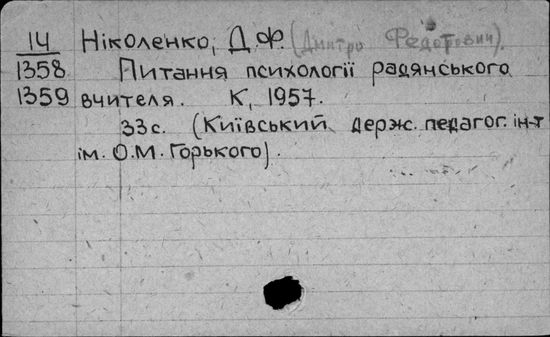 14 Ніколенко, Д.Ф. (Дмитро Федотович).
1358 Питання психології радянського
1359 вчителя. К, 1957.
33с. (Київський держ. педагог. ін-т
ім. О.М. Горького).